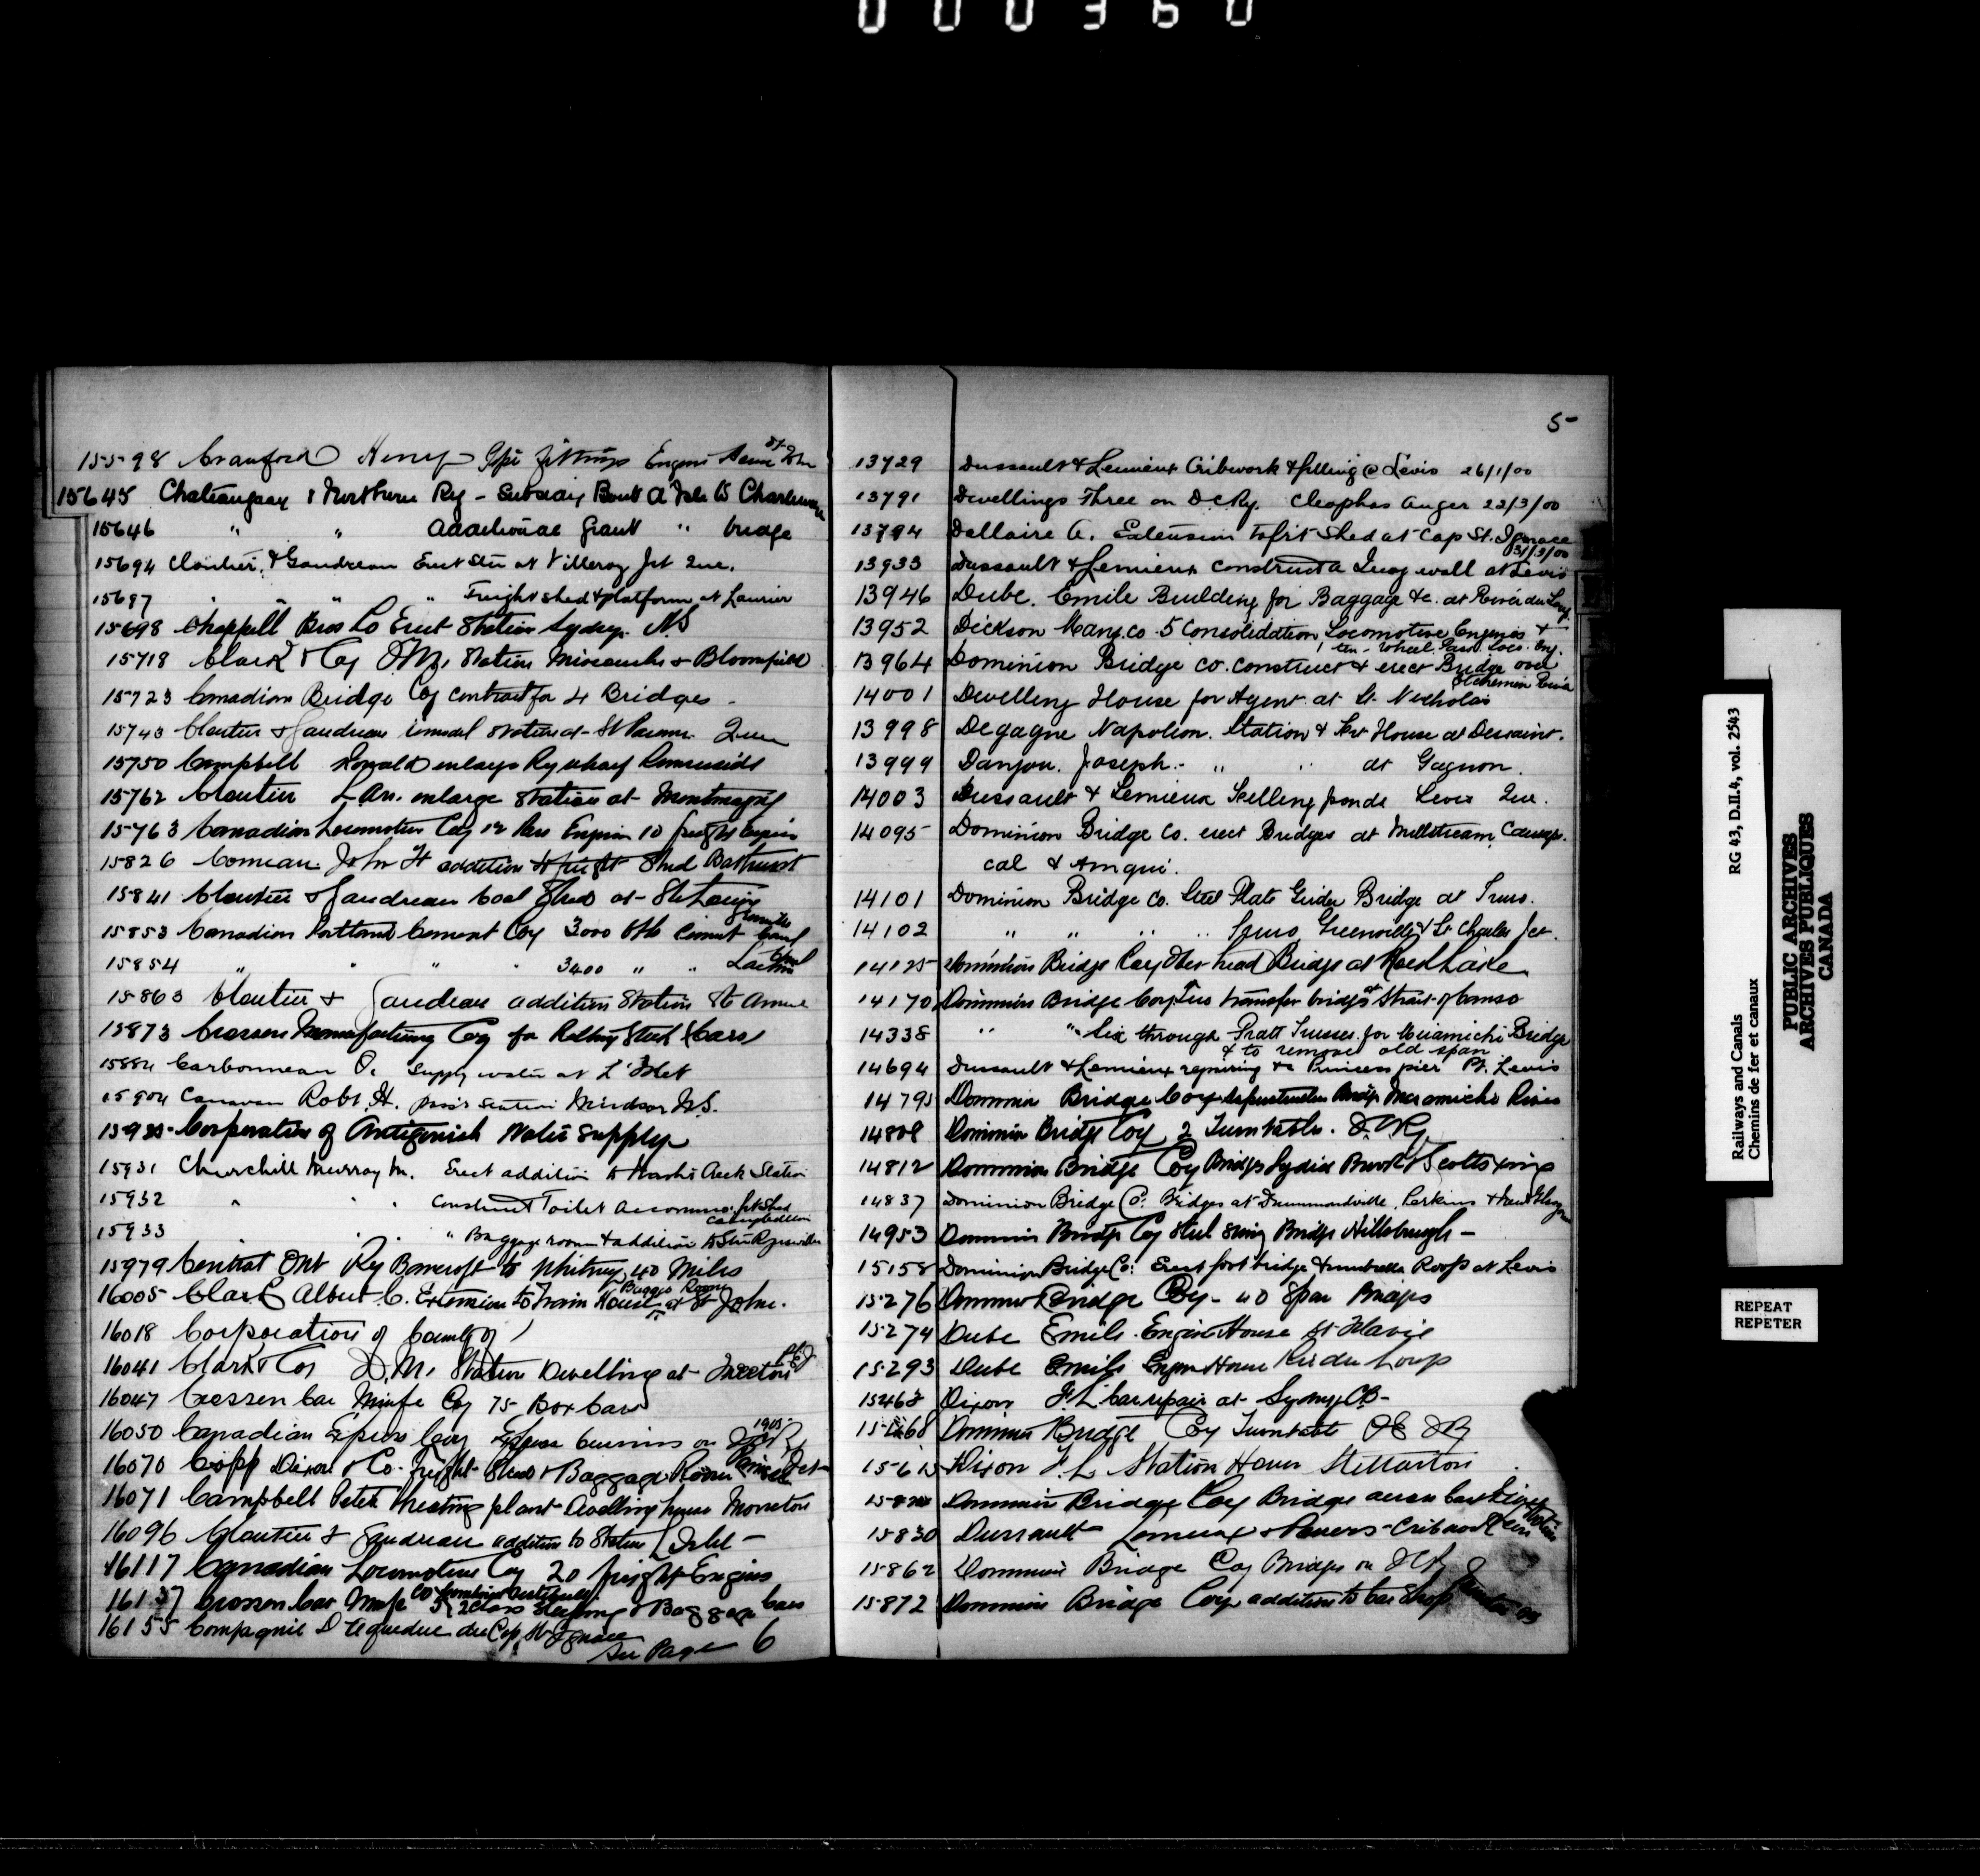 000360
15598 Crawford Henry Pipe fittings Engine House St John
15645 Chateauguay & Northern Ry - Subsidy Bout a l'Isle to Charlemagne
15646 " " Additional Grant " bridge
15694 Cloutier & Gaudreau Erect Stn at Villeroy Jct Que.
15697 " " " " Freight shed & platform at Laurier
15698 Chappell Bros Co Erect Station Sydney N.S
15718 Clark & Coy Station & Bloomfield
15723 Canadian Bridge Coy contract for 4 Bridges
15743 Cloutier & Gaudreau remodel station at Que
15750 Campbell Ronald enlarge Ry wharf Summerside
15762 Cloutier enlarge Station at Montmagny
15763 Canadian Locomotive Coy 12 Pass Engine 10 freight Engine
15826 Comeau John H addition to freight Shed Bathurst
15841 Cloutier & Gaudreau Coal Shed at Ste Louise
15853 Canadian Portland Cement Coy 3000 bbls Cement Grenville Canal
15854 " " " " 3400 " " Lachine Canal
15863 Cloutier & Gaudreau addition Station St Anne
15873 Crossen Manufacturing Coy for Rolling Stock (Cars)
15882 Carbonneau O. Supply water at L'Islet
15904 Canavan Robt. H. station Windsor N.S.
15930 Corporation of Antigonish Water Supply
15931 Churchill Murray M. Erect addition to Creek Station
15932 " " " Construct Toilet Accommo. frt Shed Campbellton
15933 " " " Baggage room & addition to Stn
15979 Central Ont Ry Bancroft to Whitney 40 Miles
16005 Clark Albert C. Extension to Train House & Baggage Room at St John.
16018 Corporation of County of
16041 Clark & Coy D.M. Station Dwelling at P.E.I
16047 Crossen Car Manfe Coy 75 Box Cars
16050 Canadian Express Coy Express business on I.C.R. 1905
16070 Copp Dixon & Co. Freight Shed & Baggage Room
16071 Campbell Peter Heating plant dwelling house Moncton
16096 Cloutier & Gaudreau addition to Station L'Islet
16117 Canadian Locomotive Coy 20 freight Engines
16137 Crossen Car Manfe Co 2 Class Sleeping & Baggage Cars
16155 Compagnie D'Aqueduc du Cap St Ignace
See Page 6
5
13729 Dussault & Lemieux Cribwork & filling @ Levis 26/1/00
13791 Dwellings Three on D.C.Ry. Cleophas Auger 22/3/00
13794 Dallaire A. Extension to frt Shed at Cap St. Ignace
31/3/00
13933 Dussault & Lemieux construct a Quay wall at Levis
13946 Dube. Emile Building for Baggage &c. at Rivér du Loup
13952 Dickson Many. co. 5 Consolidation Locomotive Engines &
1 ten-wheel Pass. Loco. Eng.
13964 Dominion Bridge co. construct & erect Bridge over
Etchemin River
14001 Dwelling House for Agent at St. Nicholas
13998 Degagne Napoleon. Station & Frt House at Dessaint.
13999 Danjou. Joseph. " " at Gagnon.
14003 Dussault & Lemieux Skelling ponds Levis Que.
14095 Dominion Bridge Co. erect Bridges at Millstream, Causap-
cal & Amqui.
14101 Dominion Bridge Co. Steel Plate Girder Bridge at Truro.
14102 " " " " Truro Greenville & St Charles Jct.
14125 Dominion Bridge Coy Over head Bridge at
14170 Dominion Bridge Coy Two transfer bridges at Strait of Canso
14338 " " Six through Pratt Trusses for Miramichi Bridge
& to remove old span
14694 Dussault & Lemieux repairing &c Princess pier Pt. Levis
14795 Dominion Bridge Coy Superstructure Bridge Miramichi River
14808 Dominion Bridge Coy 2 Turntables. I.C.Ry
14812 Dominion Bridge Coy Bridges Lydiad Brook & Scotts Xing
14837 Dominion Bridge Co. Bridges at Drummondville, Perkins & New Glasgow
14953 Dominion Bridge Coy Steel Swing Bridge Hillsborough -
15158 Dominion Bridge Co: Erect foot bridge & umbrella Roofs at Levis
15276 Dominion Bridge Coy - 40 Span Bridges
15274 Dube Emile. Engine House St Flavie
15293 Dube Emile Engine House Riv du Loup
15463 Dixon F.L car repair at Sydney C.B-
15568 Dominion Bridge Coy Turntable
15615 Dixon F.L. Station House Stellarton
Dominion Bridge Coy Bridge across East River
15830 Dussault Lemieux & Cribwork
15862 Dominion Bridge Coy Bridges on I.C.R
15872 Dominion Bridge Coy addition to Car Shop
RG 43, D.II.4, vol. 2543
Railways and Canals
Chemins de fer et canaux
PUBLIC ARCHIVES
ARCHIVES PUBLIQUES
CANADA
REPEAT
REPETER